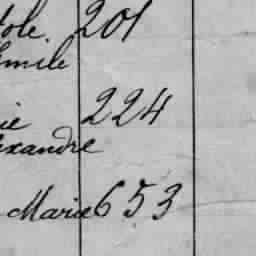 tole 201
Emile
ie 224
exandre
Marie 653